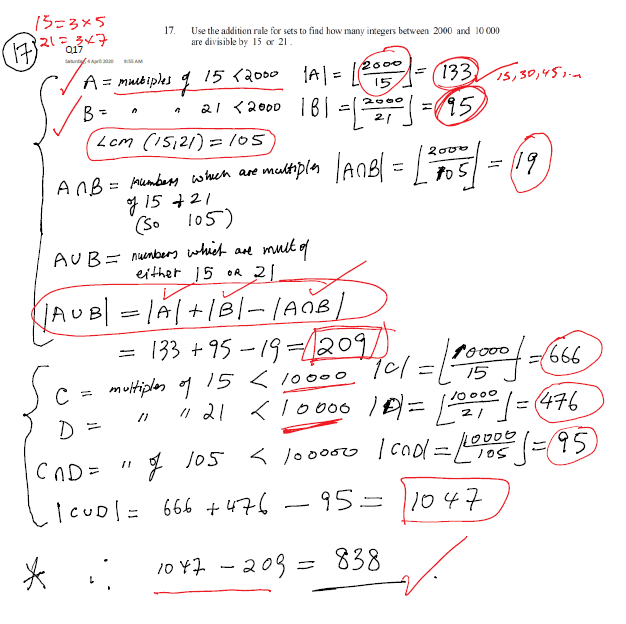 15=3×5
21=3×7
17
17. Use the addition rule for sets to find how many integers between 2000 and 10 000
are divisible by 15 or 21.
Q17
Saturday, 4 April 2020 9:55 AM
A = multiples of 15 <2000 |A| = ⌊2000/15⌋ = 133 15,30,45,...
B = " " 21 <2000 |B| = ⌊2000/21⌋ = 95
Lcm (15,21) = 105
A∩B = numbers which are multiples |A∩B| = ⌊2000/105⌋ = 19
of 15 + 21
(so 105)
A∪B = numbers which are mult of
either 15 OR 21
|A∪B| = |A|+|B|-|A∩B|
= 133 +95 -19 = 209
C = multiples of 15 < 10000 |C| = ⌊10000/15⌋ = 666
D = " " 21 < 10000 |D| = ⌊10000/21⌋ = 476
C∩D = " of 105 < 100000 |C∩D| = ⌊10000/105⌋ = 95
|C∪D| = 666 +476 - 95 = 1047
* ∴ 1047 - 209 = 838.